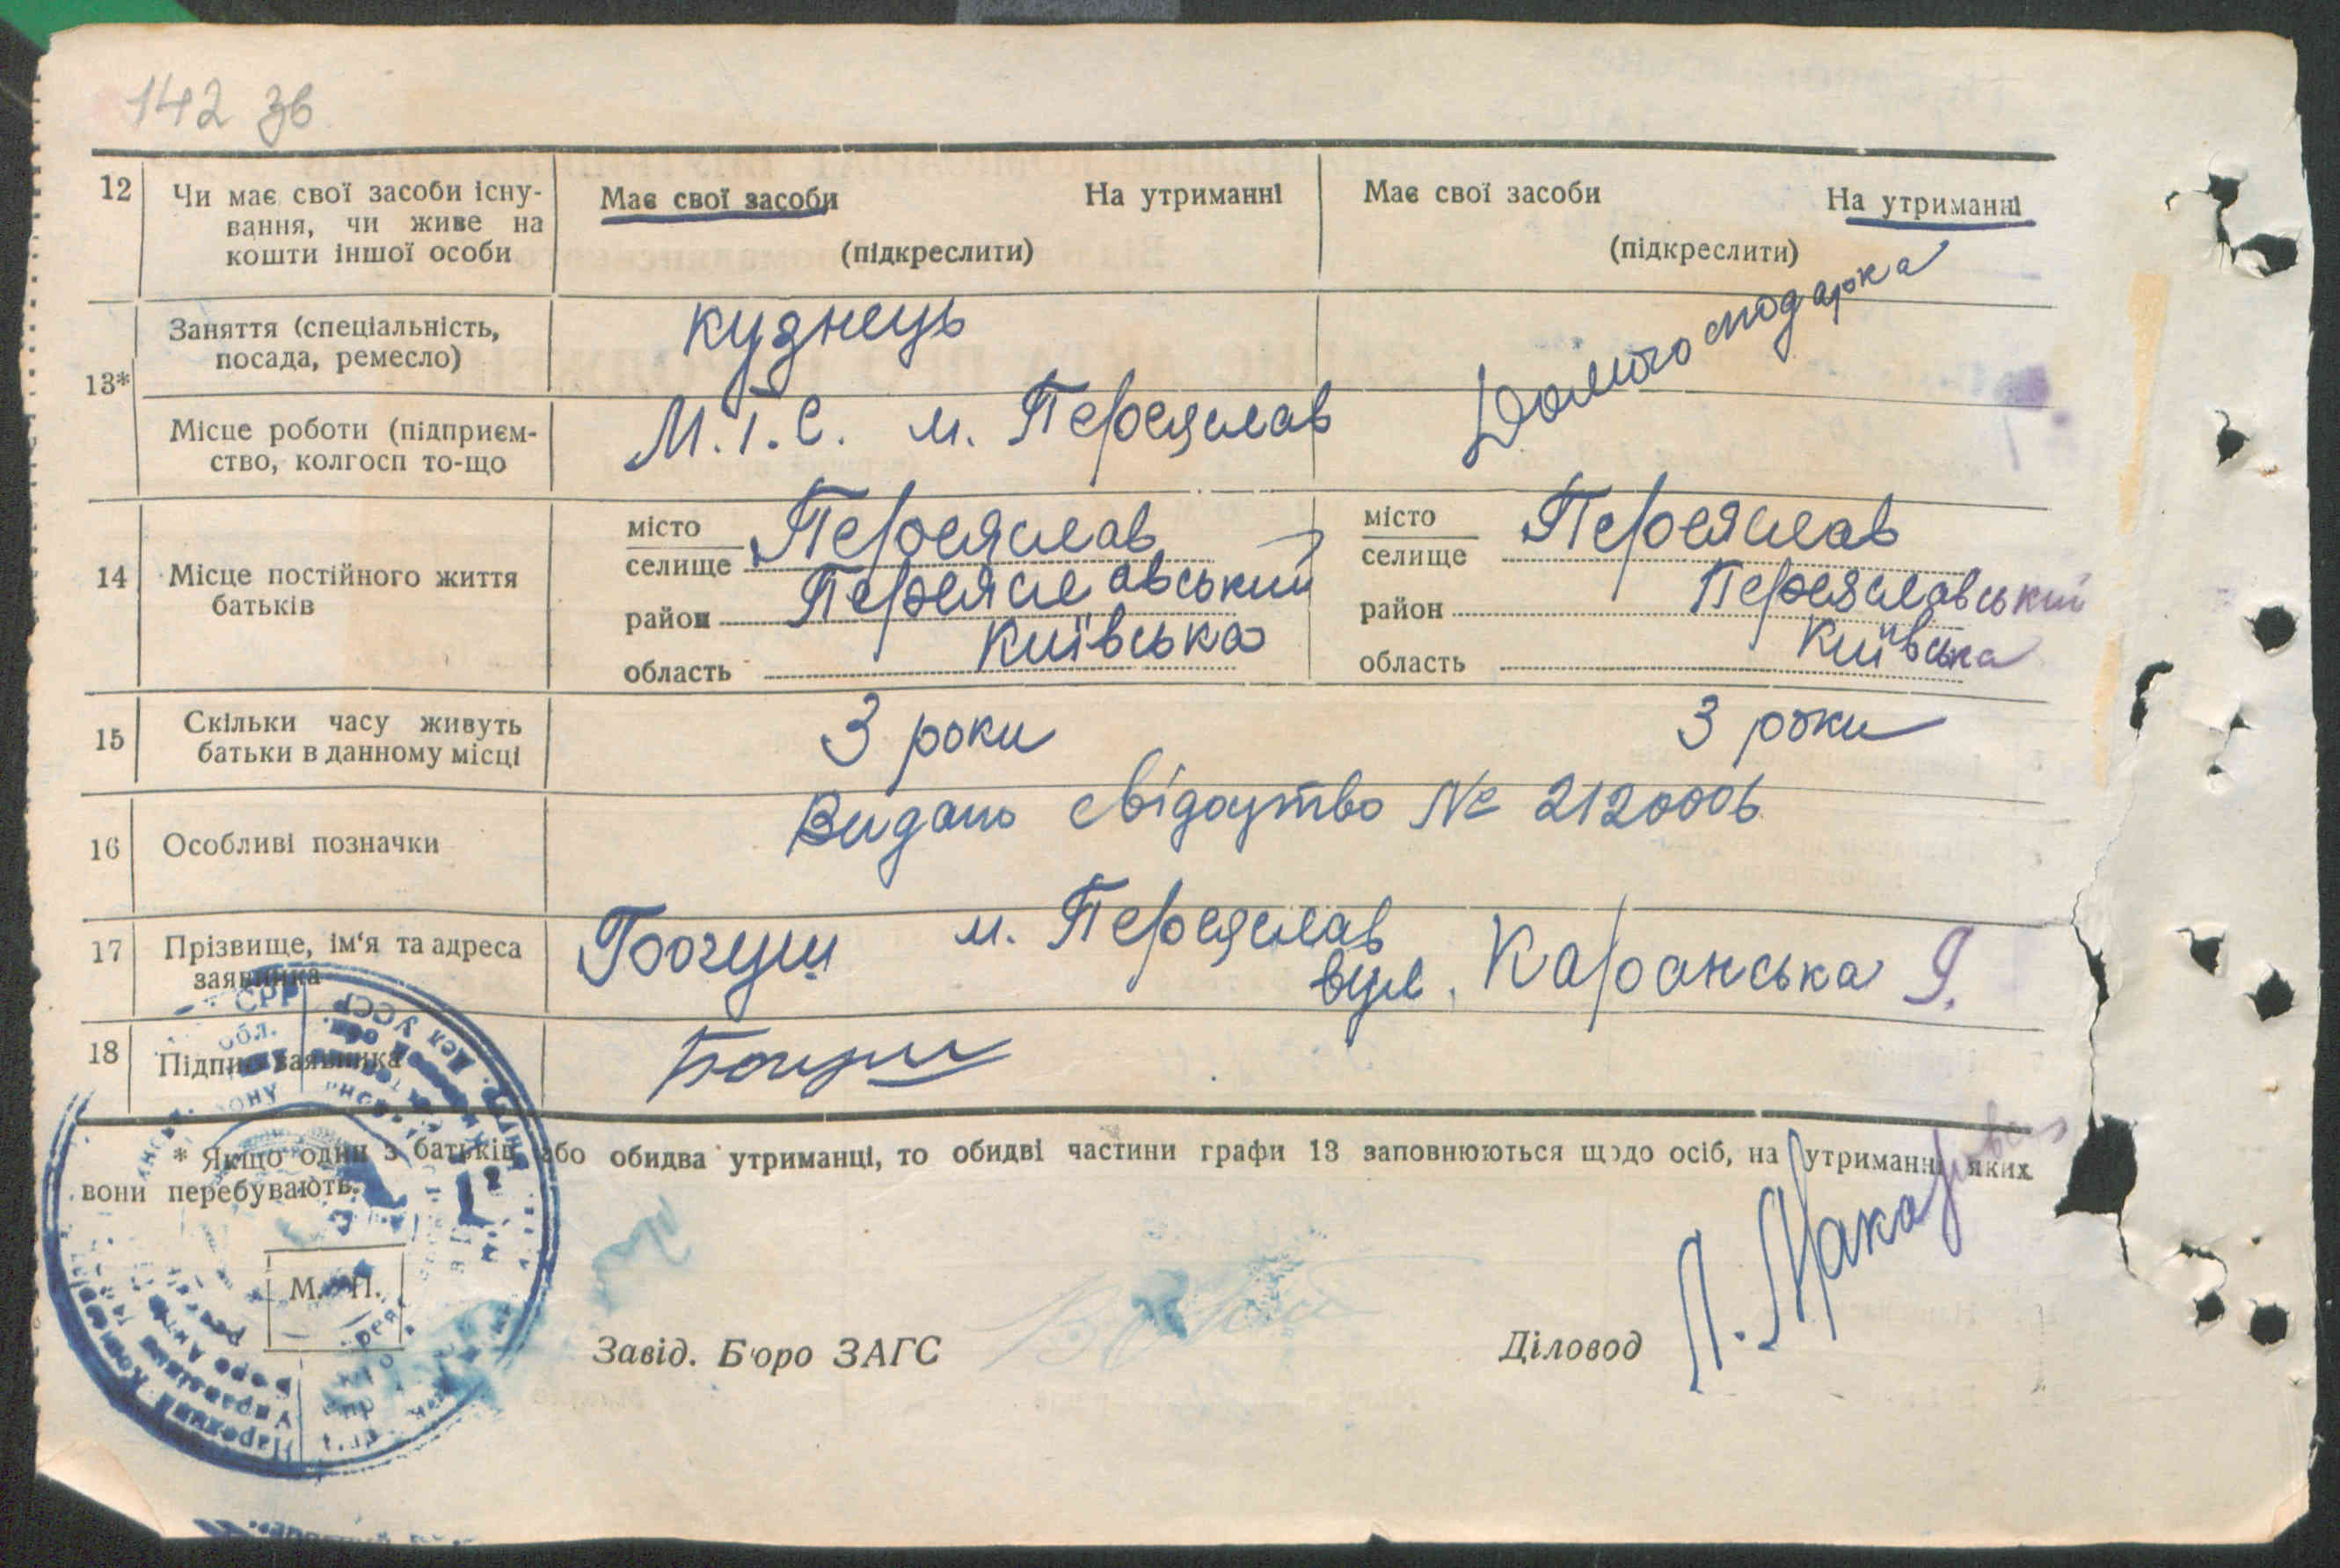 142 зв
12 Чи має свої засоби існу-
вання, чи живе на
кошти іншої особи
Має свої засоби На утриманні
(підкреслити)
Має свої засоби На утриманні
(підкреслити)
13*
Заняття (спеціальність,
посада, ремесло)
кузнець
Домогосподарка
Місце роботи (підприєм-
ство, колгосп то-що
М.Т.С. м. Переяслав
14 Місце постійного життя
батьків
місто
селище Переяслав
район Переяславський
область Київська
місто
селище Переяслав
район Переяславський
область Київська
15 Скільки часу живуть
батьки в данному місці
3 роки
3 роки
16 Особливі позначки
Видано свідоцтво № 212000б
17 Прізвище, ім'я та адреса
заявника
м. Переяслав
вул. Каранська 9.
18 Підпис заявника
* Якщо один з батьків або обидва утриманці, то обидві частини графи 13 заповнюються щодо осіб, на утриманні яких
вони перебувають.
М. П.
Завід. Б'юро ЗАГС
Діловод